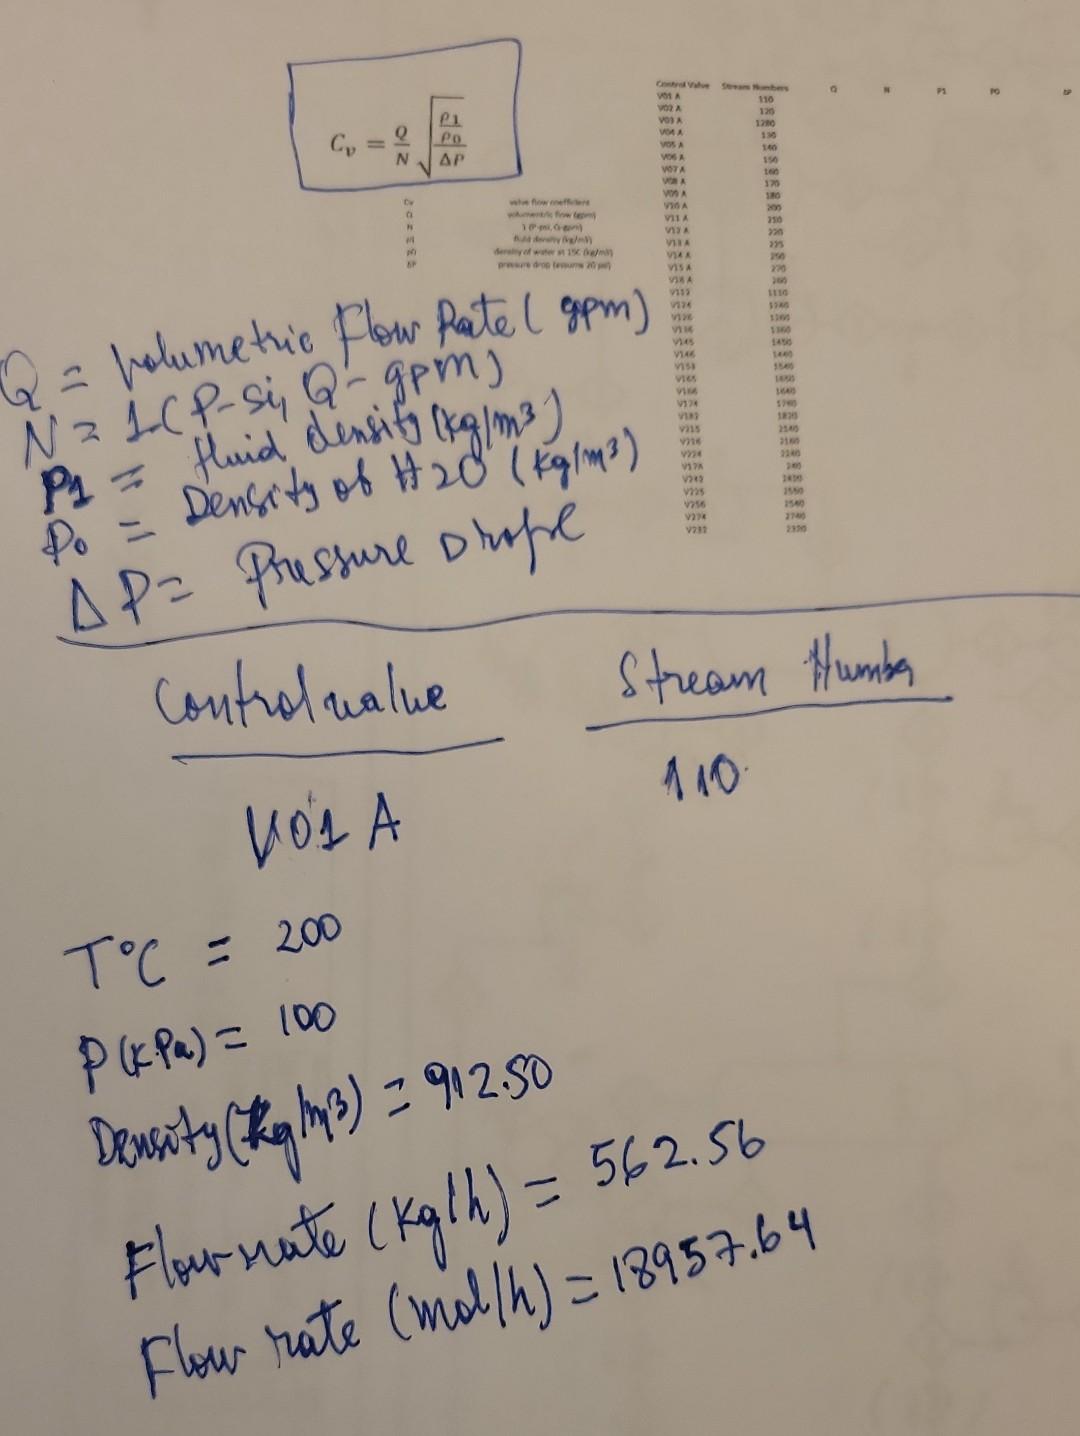 C_v = Q/N √((ρ1/ρ0)/ΔP)
Control Valve Stream Numbers Q N P1 P0 ΔP
V01 A 110
V02 A 120
V03 A 1280
V04 A 130
V05 A 140
V06 A 150
V07 A 160
V08 A 170
V09 A 180
V10 A 200
V11 A 210
V12 A 220
V13 A 225
V14 A 250
V15 A 270
V16 A 260
V112 1110
V124 1240
V126 1260
V136 1360
V145 1450
V146 1440
V153 1540
V165 1650
V166 1640
V174 1740
V182 1820
V215 2140
V216 2160
V224 2240
V17A 240
V242 2420
V225 2550
V256 2540
V274 2740
V232 2320
Cv valve flow coefficient
Q volumentric flow (gpm)
N 1 (P-psi, Q-gpm)
ρ1 fluid density (kg/m3)
ρ0 density of water at 15C (kg/m3)
ΔP pressure drop (assume 20 psi)
Q = Volumetric Flow Rate ( gpm)
N = 1 (P-Si, Q- gpm)
P1 = fluid density (kg/m³)
P0 = Density of H2O (kg/m³)
Δ P = Pressure Drope
Control value Stream Number
V01 A 110
T°C = 200
P (kPa) = 100
Density (kg/m3) = 912.50
Flow rate (kg/h) = 562.56
Flow rate (mol/h) = 18957.64